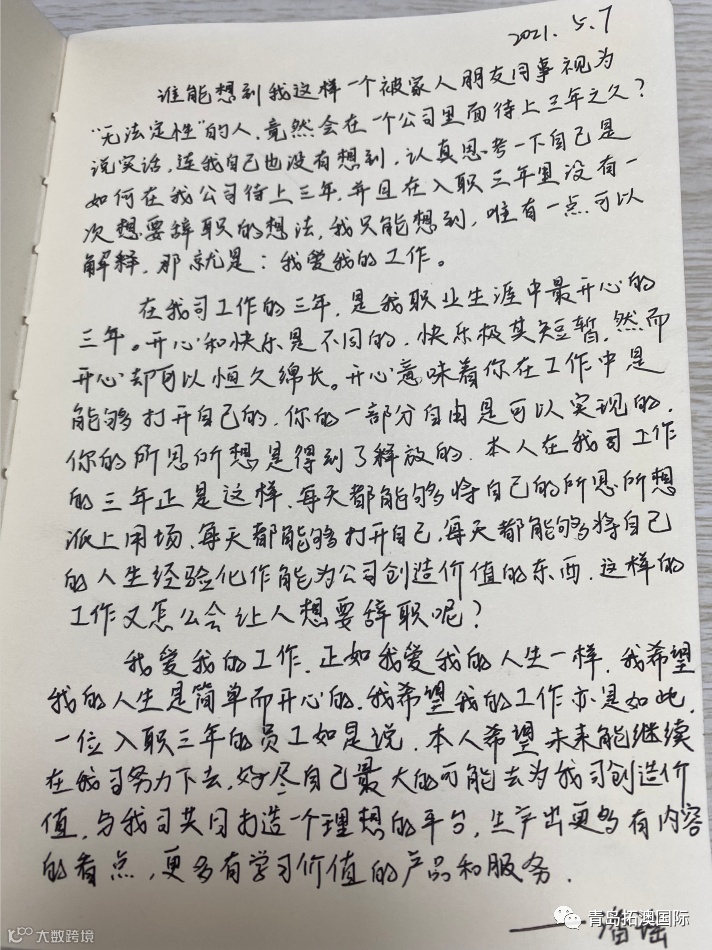 2021.5.7
谁能想到我这样一个被家人朋友同事视为
“无法定性”的人,竟然会在一个公司里面待上三年之久?
说实话,连我自己也没有想到,认真思考一下自己是
如何在我公司待上三年,并且在入职三年里没有一
次想要辞职的想法,我只能想到,唯有一点可以
解释,那就是:我爱我的工作。
在我司工作的三年,是我职业生涯中最开心的
三年。开心和快乐是不同的,快乐极其短暂,然而
开心却可以恒久绵长。开心意味着你在工作中是
能够打开自己的,你的一部分自由是可以实现的,
你的所思所想是得到了释放的.本人在我司工作
的三年正是这样,每天都能够将自己的所思所想
派上用场,每天都能够打开自己,每天都能够将自己
的人生经验化作能为公司创造价值的东西.这样的
工作又怎么会让人想要辞职呢?
我爱我的工作,正如我爱我的人生一样,我希望
我的人生是简单而开心的,我希望我的工作亦是如此,
一位入职三年的员工如是说,本人希望未来能继续
在我司努力下去,好尽自己最大的可能去为我司创造价
值,与我司共同打造一个理想的平台,生产出更多有内容
的看点,更多有学习价值的产品和服务.
——潘瑶
青岛拓澳国际
大数跨境